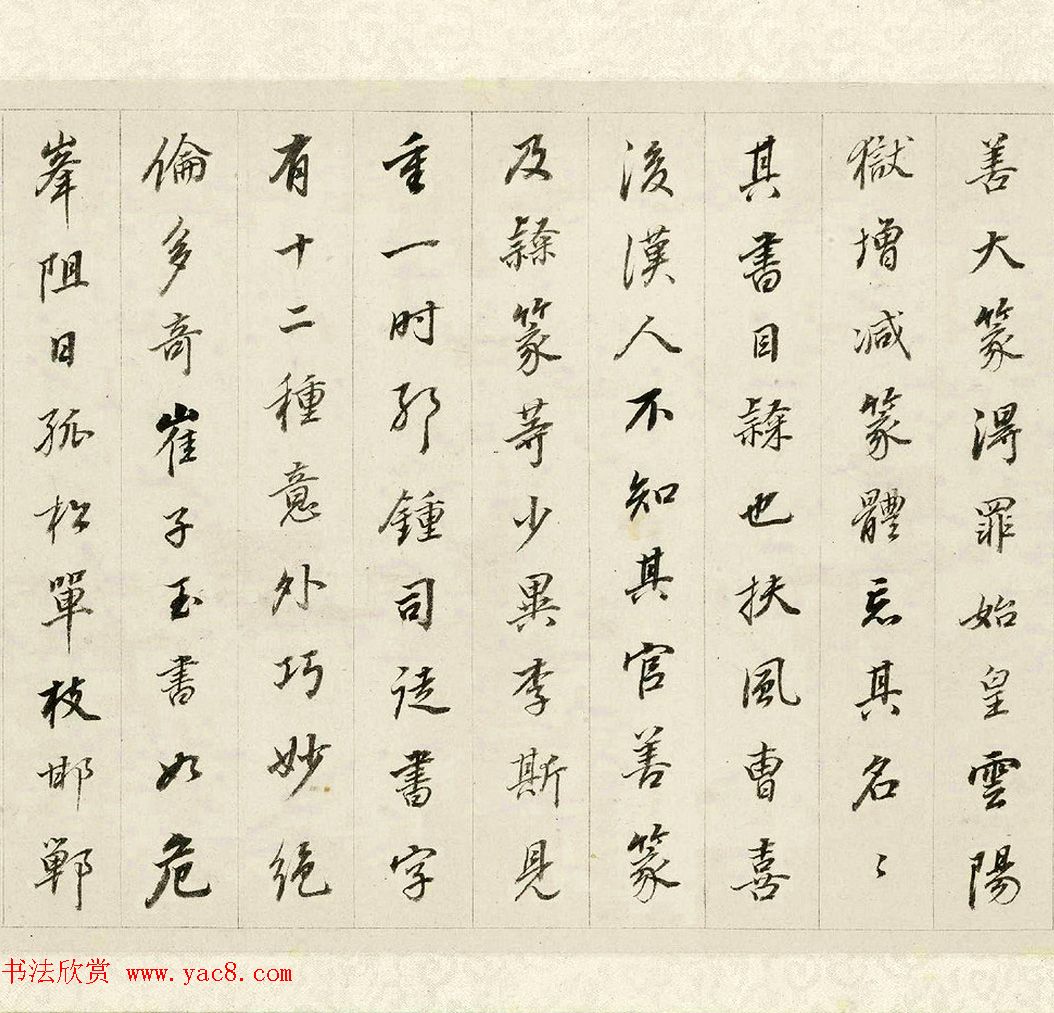 善大篆得罪始皇雲陽
獄增减篆體忘其名〻
其書目隸也扶風曹喜
後漢人不知其官善篆
及隸篆等少異李斯見
重一时邪鍾司徒書字
有十二種意外巧妙绝
倫多奇崔子玉書如危
峯阻日孤松單枝邯鄲
书法欣赏 www.yac8.com